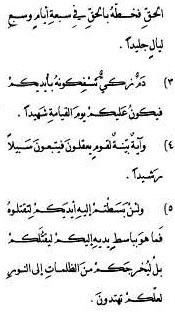 الحق فخطّه بالحق في سبعة أيام وسبع
ليال جليداً.
(٣) دم زكي تسفكونه بأيديكم
فيكون عليكم يوم القيامة شهيداً.
(٤) وآية بينة لقوم يعقلون فيتبعون سبيلاً
رشيداً.
(٥) ولئن بسطتم إليه أيديكم لتقتلوه
فما هو باسط يديه إليكم ليقتلكم
بل ليخرجكم من الظلمات إلى النور
لعلكم تهتدون.